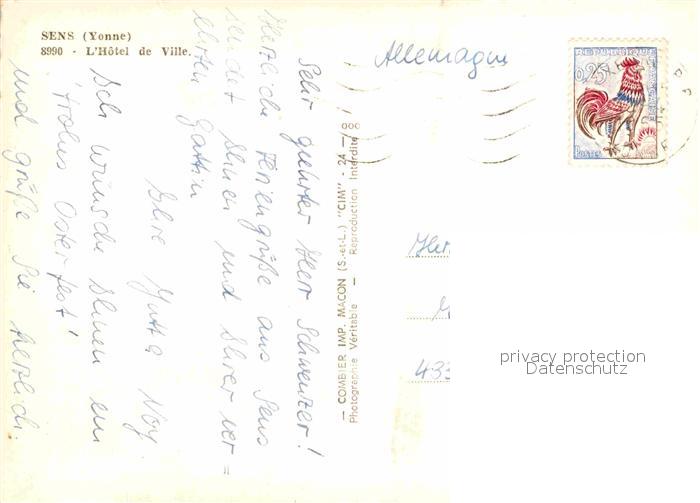 SENS (Yonne)
8990 - L'Hôtel de Ville.
Allemagne
0,25
POSTES
Sehr geehrter Herr Schweitzer!
Herzliche Feriengrüße aus Sens
sendet Ihnen und Ihrer ver=
ehrten Gattin
Ihre Jutta Noy.
Ich wünsche Ihnen ein
frohes Osterfest!
und grüße Sie herzlich.
— COMBIER IMP. MACON (S.-et-L.) "CIM" - 24-/000
Photographie Véritable — Reproduction Interdite
Her
433
privacy protection
Datenschutz